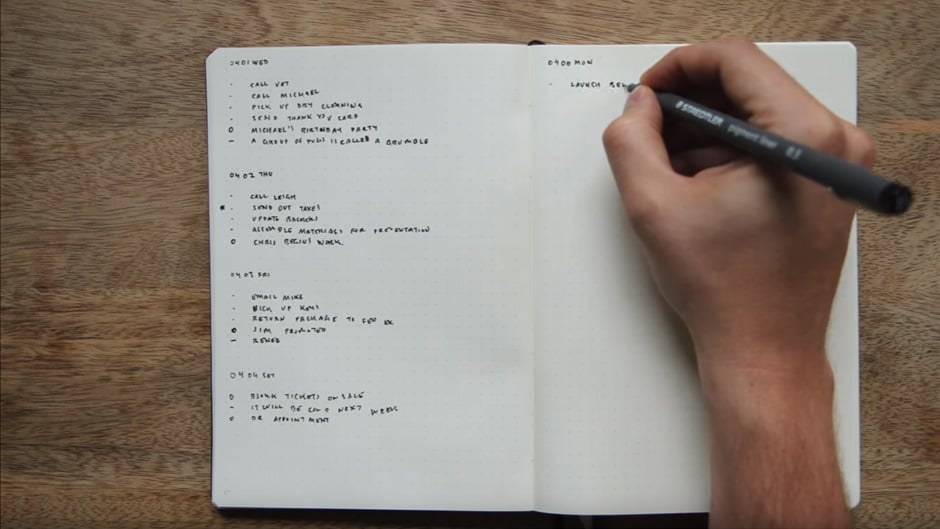 04.01 WED
· CALL VET
· CALL MICHAEL
· PICK UP DRY CLEANING
· SEND THANK YOU CARD
O MICHAEL'S BIRTHDAY PARTY
– A GROUP OF PUGS IS CALLED A GRUMBLE
04.02 THU
· CALL LEIGH
* · SEND OUT TAXES
· UPDATE BACKERS
· ASSEMBLE MATERIALS FOR PRESENTATION
O CHRIS BEGINS WORK
04.03 FRI
· EMAIL MIKE
· PICK UP KEYS
· RETURN PACKAGE TO FED EX
O JIM PROMOTED
–
04.04 SAT
O BJORK TICKETS ON SALE
– IT WILL BE COLD NEXT WEEK
O DR APPOINTMENT
04.06 MON
· LAUNCH
STAEDTLER
pigment liner